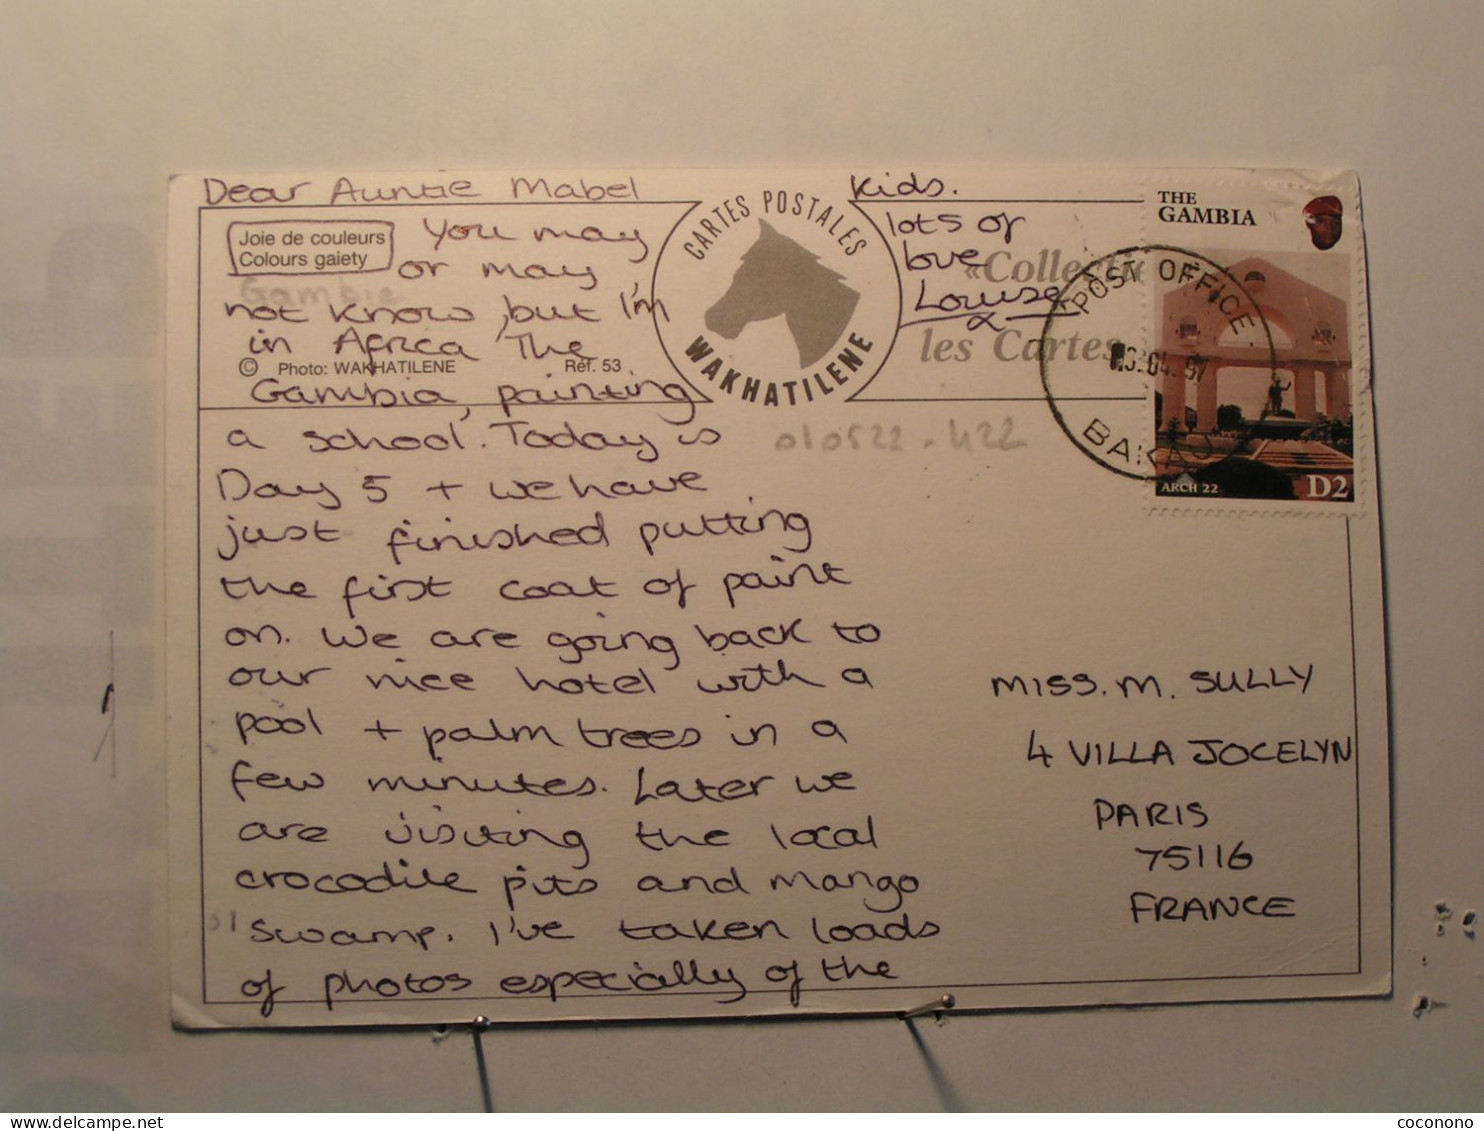 Dear Auntie Mabel
Joie de couleurs
Colours gaiety
Gambie
You may
or may
not know, but I'm
in Africa, The
© Photo: WAKHATILENE
Réf. 53
Gambia, painting
a school. Today is
Day 5 + we have
just finished putting
the first coat of paint
on. We are going back to
our nice hotel with a
pool + palm trees in a
few minutes. Later we
are visiting the local
crocodile pits and mango
swamp. I've taken loads
of photos especially of the
kids.
lots of
love
Louise
x
CARTES POSTALES
WAKHATILENE
les Cartes
010522-422
THE
GAMBIA
ARCH 22
D2
POST OFFICE
BAKAU
MISS. M. SULLY
4 VILLA JOCELYN
PARIS
75116
FRANCE
31
coconono